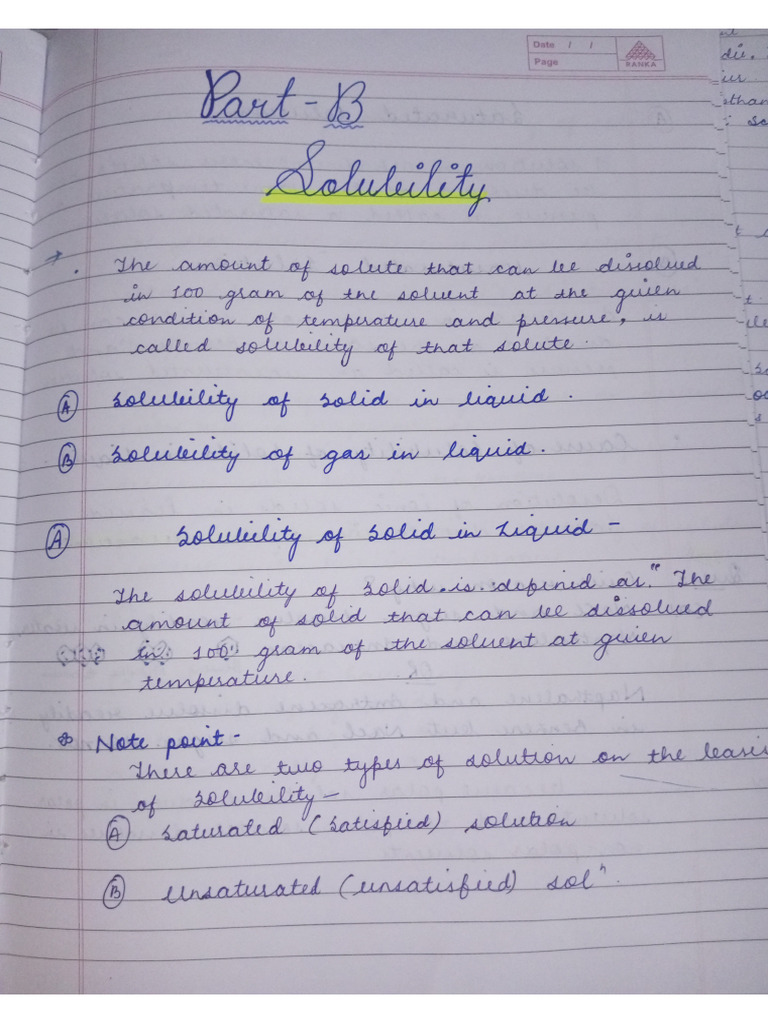 Date / /
Page
RANKA
Part - B
Solubility
→ . The amount of solute that can be dissolved
in 100 gram of the solvent at the given
condition of temperature and pressure, is
called solubility of that solute.
Ⓐ Solubility of solid in liquid.
Ⓑ Solubility of gas in liquid.
Ⓐ Solubility of Solid in Liquid -
The solubility of solid is defined as "The
amount of solid that can be dissolved
in 100 gram of the solvent at given
temperature.
Note point -
There are two types of solution on the basis
of solubility -
Ⓐ Saturated (Satisfied) solution
Ⓑ Unsaturated (unsatisfied) solⁿ.